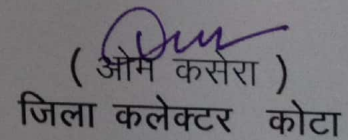 ( ओम कसेरा )
जिला कलेक्टर कोटा